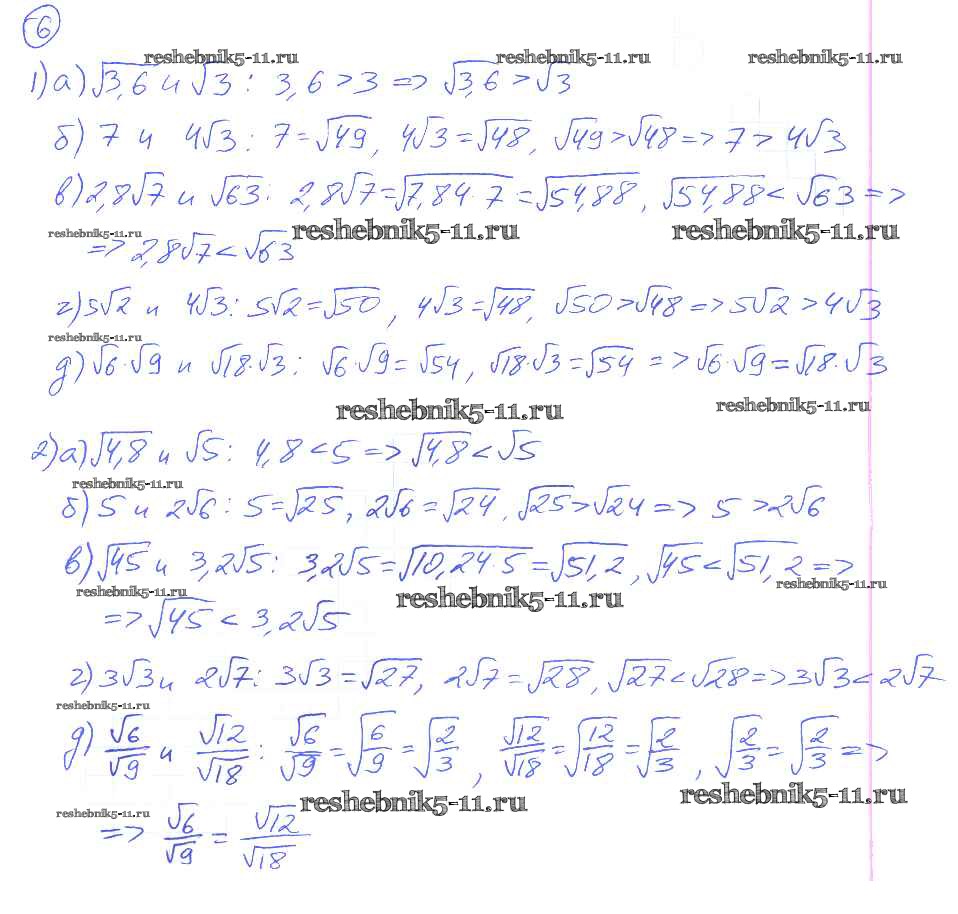 6
reshebnik5-11.ru reshebnik5-11.ru reshebnik5-11.ru
1) а) √3,6 и √3 : 3,6 > 3 => √3,6 > √3
б) 7 и 4√3 : 7 = √49, 4√3 = √48, √49 > √48 => 7 > 4√3
в) 2,8√7 и √63 : 2,8√7 = √7,84·7 = √54,88, √54,88 < √63 =>
reshebnik5-11.ru reshebnik5-11.ru reshebnik5-11.ru
=> 2,8√7 < √63
г) 5√2 и 4√3 : 5√2 = √50, 4√3 = √48, √50 > √48 => 5√2 > 4√3
reshebnik5-11.ru
д) √6·√9 и √18·√3 : √6·√9 = √54, √18·√3 = √54 => √6·√9 = √18·√3
reshebnik5-11.ru reshebnik5-11.ru
2) а) √4,8 и √5 : 4,8 < 5 => √4,8 < √5
reshebnik5-11.ru
б) 5 и 2√6 : 5 = √25, 2√6 = √24, √25 > √24 => 5 > 2√6
в) √45 и 3,2√5 : 3,2√5 = √10,24·5 = √51,2, √45 < √51,2 =>
reshebnik5-11.ru reshebnik5-11.ru reshebnik5-11.ru
=> √45 < 3,2√5
г) 3√3 и 2√7 : 3√3 = √27, 2√7 = √28, √27 < √28 => 3√3 < 2√7
reshebnik5-11.ru
д) √6/√9 и √12/√18 : √6/√9 = √6/9 = √2/3, √12/√18 = √12/18 = √2/3, √2/3 = √2/3 =>
reshebnik5-11.ru reshebnik5-11.ru reshebnik5-11.ru
=> √6/√9 = √12/√18